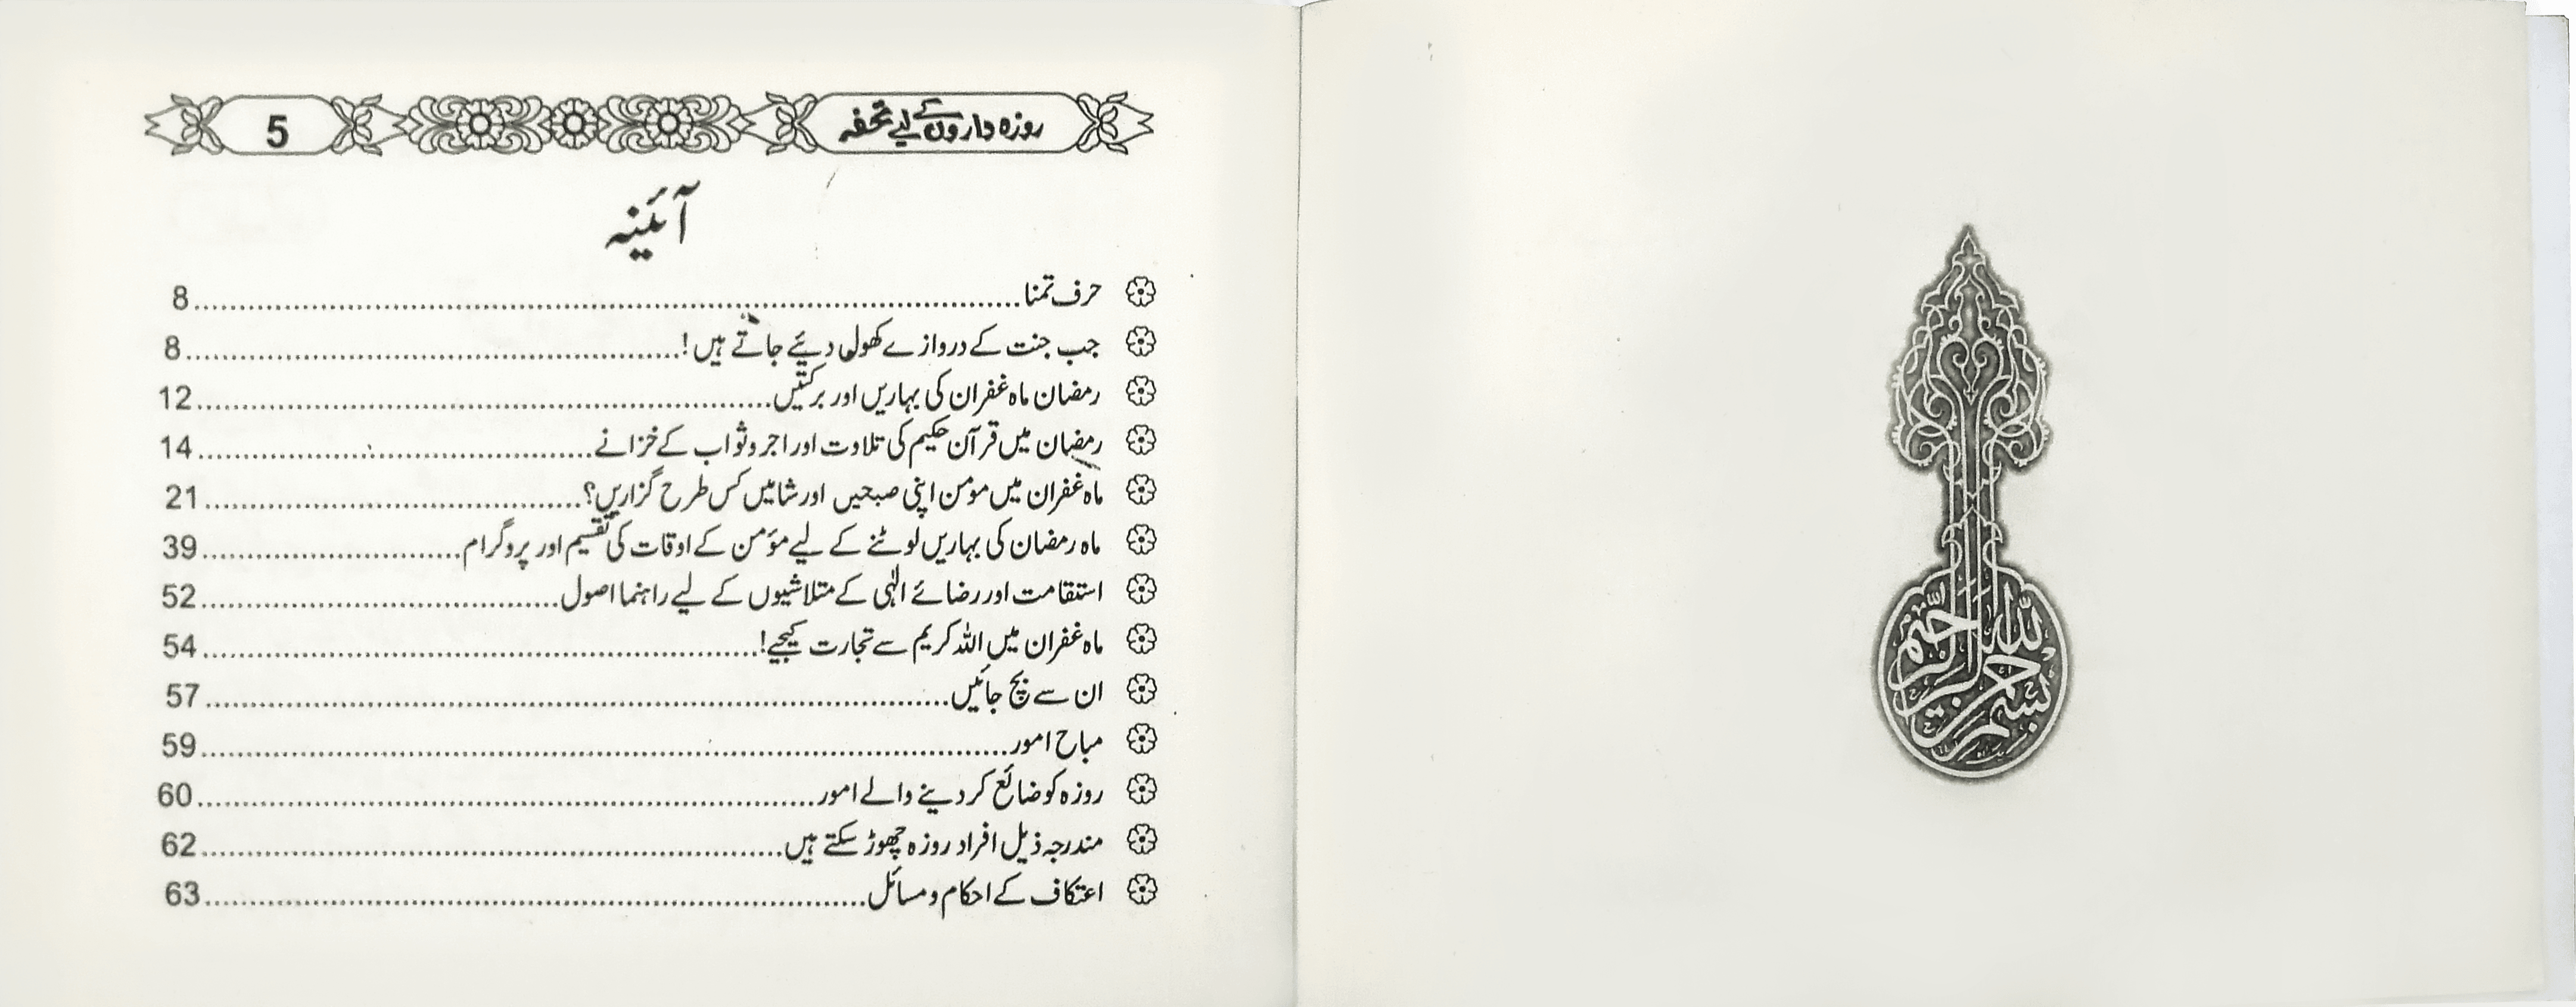 بسم الله الرحمن الرحيم
روزہ داروں کے لیے تحفہ 5
آئینہ
حرف تمنا 8
جب جنت کے دروازے کھول دیئے جاتے ہیں! 8
رمضان ماہ غفران کی بہاریں اور برکتیں 12
رمضان میں قرآن حکیم کی تلاوت اور اجر و ثواب کے خزانے 14
ماہ غفران میں مومن اپنی صبحیں اور شامیں کس طرح گزاریں؟ 21
ماہ رمضان کی بہاریں لوٹنے کے لیے مؤمن کے اوقات کی تقسیم اور پروگرام 39
استقامت اور رضائے الٰہی کے متلاشیوں کے لیے راہنما اصول 52
ماہ غفران میں اللہ کریم سے تجارت کیجیے! 54
ان سے بچ جائیں 57
مباح امور 59
روزہ کو ضائع کر دینے والے امور 60
مندرجہ ذیل افراد روزہ چھوڑ سکتے ہیں 62
اعتکاف کے احکام و مسائل 63